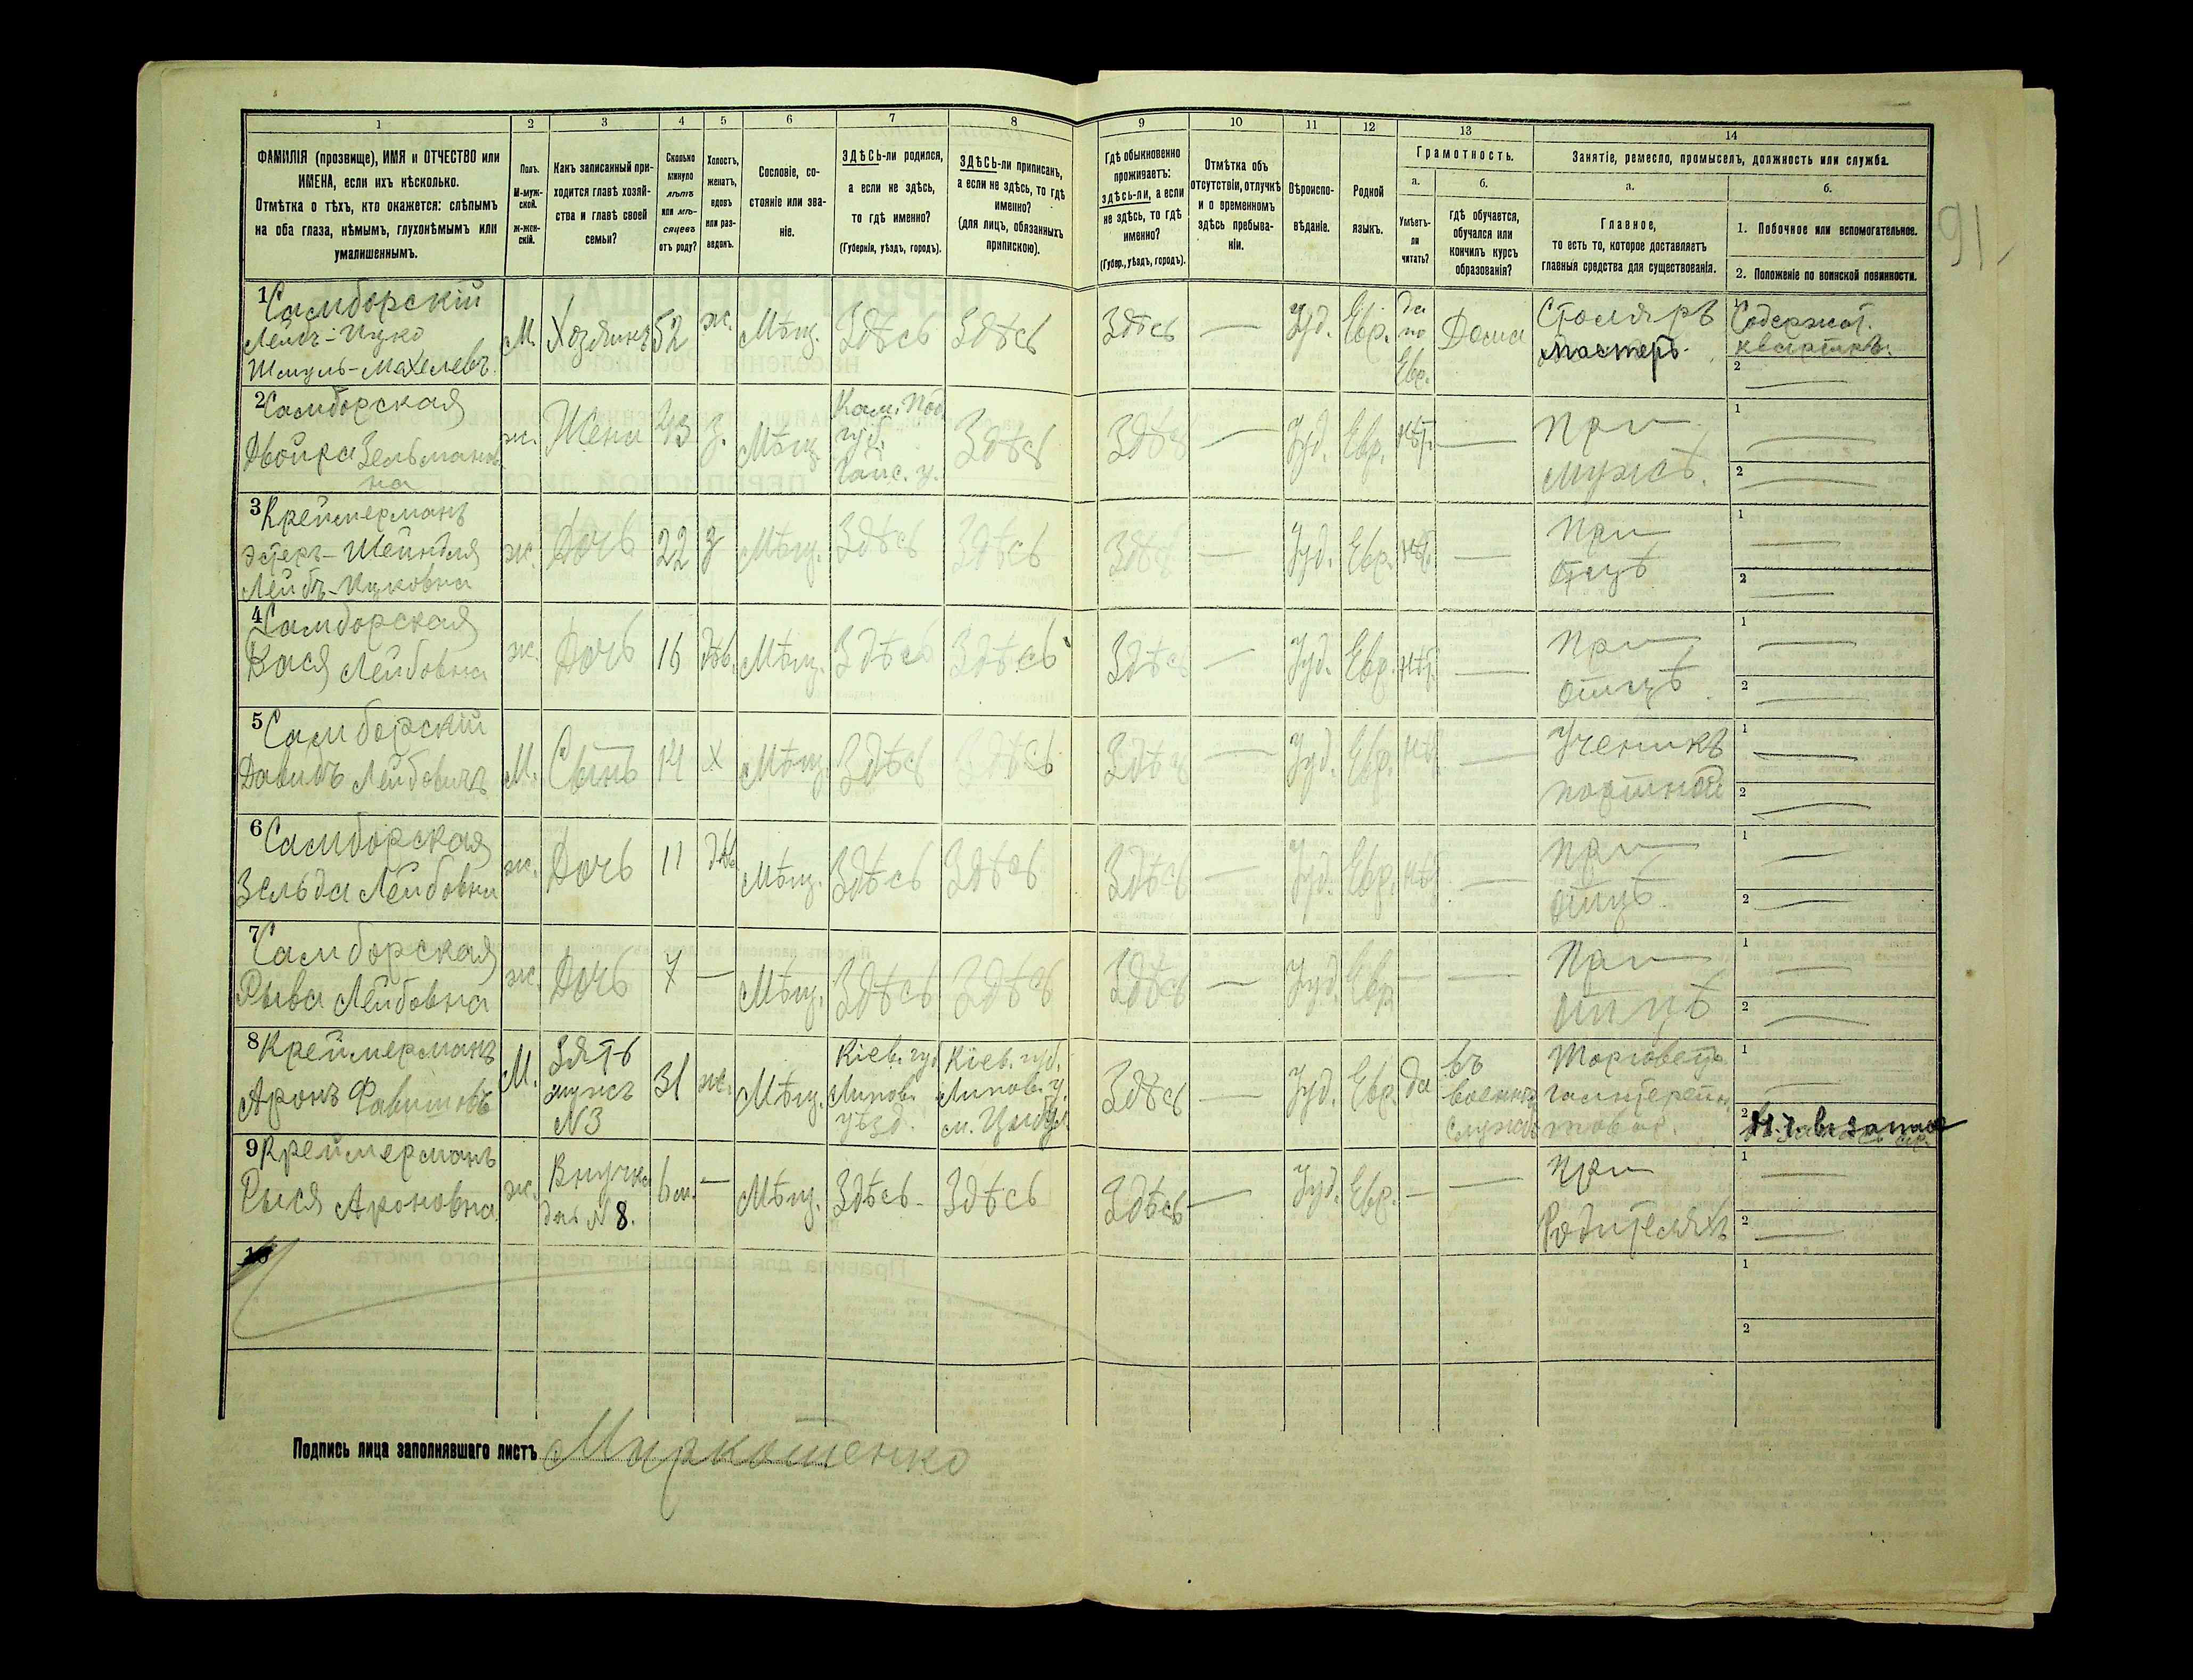 1 2 3 4 5 6 7 8 9 10 11 12 13 14
ФАМИЛІЯ (прозвище), ИМЯ и ОТЧЕСТВО или
ИМЕНА, если ихъ нѣсколько.
Отмѣтка о тѣхъ, кто окажется: слѣпымъ
на оба глаза, нѣмымъ, глухонѣмымъ или
умалишеннымъ.
Полъ.
М-муж-
ской.
ж-жен-
скій.
Какъ записанный при-
ходится главѣ хозяй-
ства и главѣ своей
семьи?
Сколько
минуло
лѣтъ
или мѣ-
сяцевъ
отъ роду?
Холостъ,
женатъ,
вдовъ
или раз-
веденъ.
Сословіе, со-
стояніе или зва-
ніе.
ЗДѢСЬ-ли родился,
а если не здѣсь,
то гдѣ именно?
(Губернія, уѣздъ, городъ).
ЗДѢСЬ-ли приписанъ,
а если не здѣсь, то гдѣ
именно?
(для лицъ, обязанныхъ
припискою).
Гдѣ обыкновенно
проживаетъ:
здѣсь-ли, а если
не здѣсь, то гдѣ
именно?
(Губер., уѣздъ, городъ).
Отмѣтка объ
отсутствіи, отлучкѣ
и о временномъ
здѣсь пребыва-
ніи.
Вѣроиспо-
вѣданіе.
Родной
языкъ.
Грамотность.
а.
Умѣетъ-
ли
читать?
б.
гдѣ обучается,
обучался или
кончилъ курсъ
образованія?
Занятіе, ремесло, промыселъ, должность или служба.
а.
Главное,
то есть то, которое доставляетъ
главныя средства для существованія.
б.
1. Побочное или вспомогательное.
2. Положеніе по воинской повинности.
91
1 Самборскій
Лейбъ-Ицко
Шмуль-Махелевъ
М. Хозяинъ 52 ж. Мѣщ. Здѣсь Здѣсь Здѣсь — Іуд. Евр.
да
по
Евр.
Дома
Столяръ
мастеръ.
1 Содержат.
квартиръ.
2 —
2 Самборская
Двойра Зельманов-
на
ж. Жена 43 з. Мѣщ.
Кам. Под.
губ.
Гайс. у.
Здѣсь Здѣсь — Іуд. Евр. нѣт. —
При
мужѣ.
1 —
2 —
3 Креймерманъ
Эстеръ-Шейндля
Лейбъ-Ицковна
ж. Дочь 22 з Мѣщ. Здѣсь Здѣсь Здѣсь — Іуд. Евр. нѣт. —
При
отцѣ
1 —
2 —
4 Самборская
Кася Лейбовна
ж. Дочь 16 дѣв. Мѣщ. Здѣсь Здѣсь Здѣсь — Іуд. Евр. нѣт. —
При
отцѣ.
1 —
2 —
5 Самборскій
Давидъ Лейбовичъ
М. Сынъ 14 х Мѣщ. Здѣсь Здѣсь Здѣсь — Іуд. Евр. нѣт —
Ученикъ
портной
1 —
2 —
6 Самборская
Зельда Лейбовна
ж. Дочь 11 дѣв Мѣщ. Здѣсь Здѣсь Здѣсь — Іуд. Евр. нѣт —
При
отцѣ.
1 —
2 —
7 Самборская
Рыва Лейбовна
ж. Дочь 7 — Мѣщ. Здѣсь Здѣсь Здѣсь — Іуд. Евр — —
При
отцѣ
1 —
2 —
8 Креймерманъ
Аронъ
М.
Зять
мужъ
№3
31 ж. Мѣщ.
Кіев. губ
Липов.
уѣзд.
Кіев. губ.
Липов. у.
м.
Здѣсь — Іуд. Евр. да
въ
военной
службѣ
Торговецъ
галантерейн.
товар.
1 —
2 въ запасѣ
9 Креймерманъ
Рыся Ароновна
ж.
Внучка
дочь №8.
6 м. — Мѣщ. Здѣсь Здѣсь Здѣсь — Іуд. Евр. — —
При
Родителяхъ
1 —
2 —
10
1
2
Подпись лица заполнявшаго листъ Миркотенко